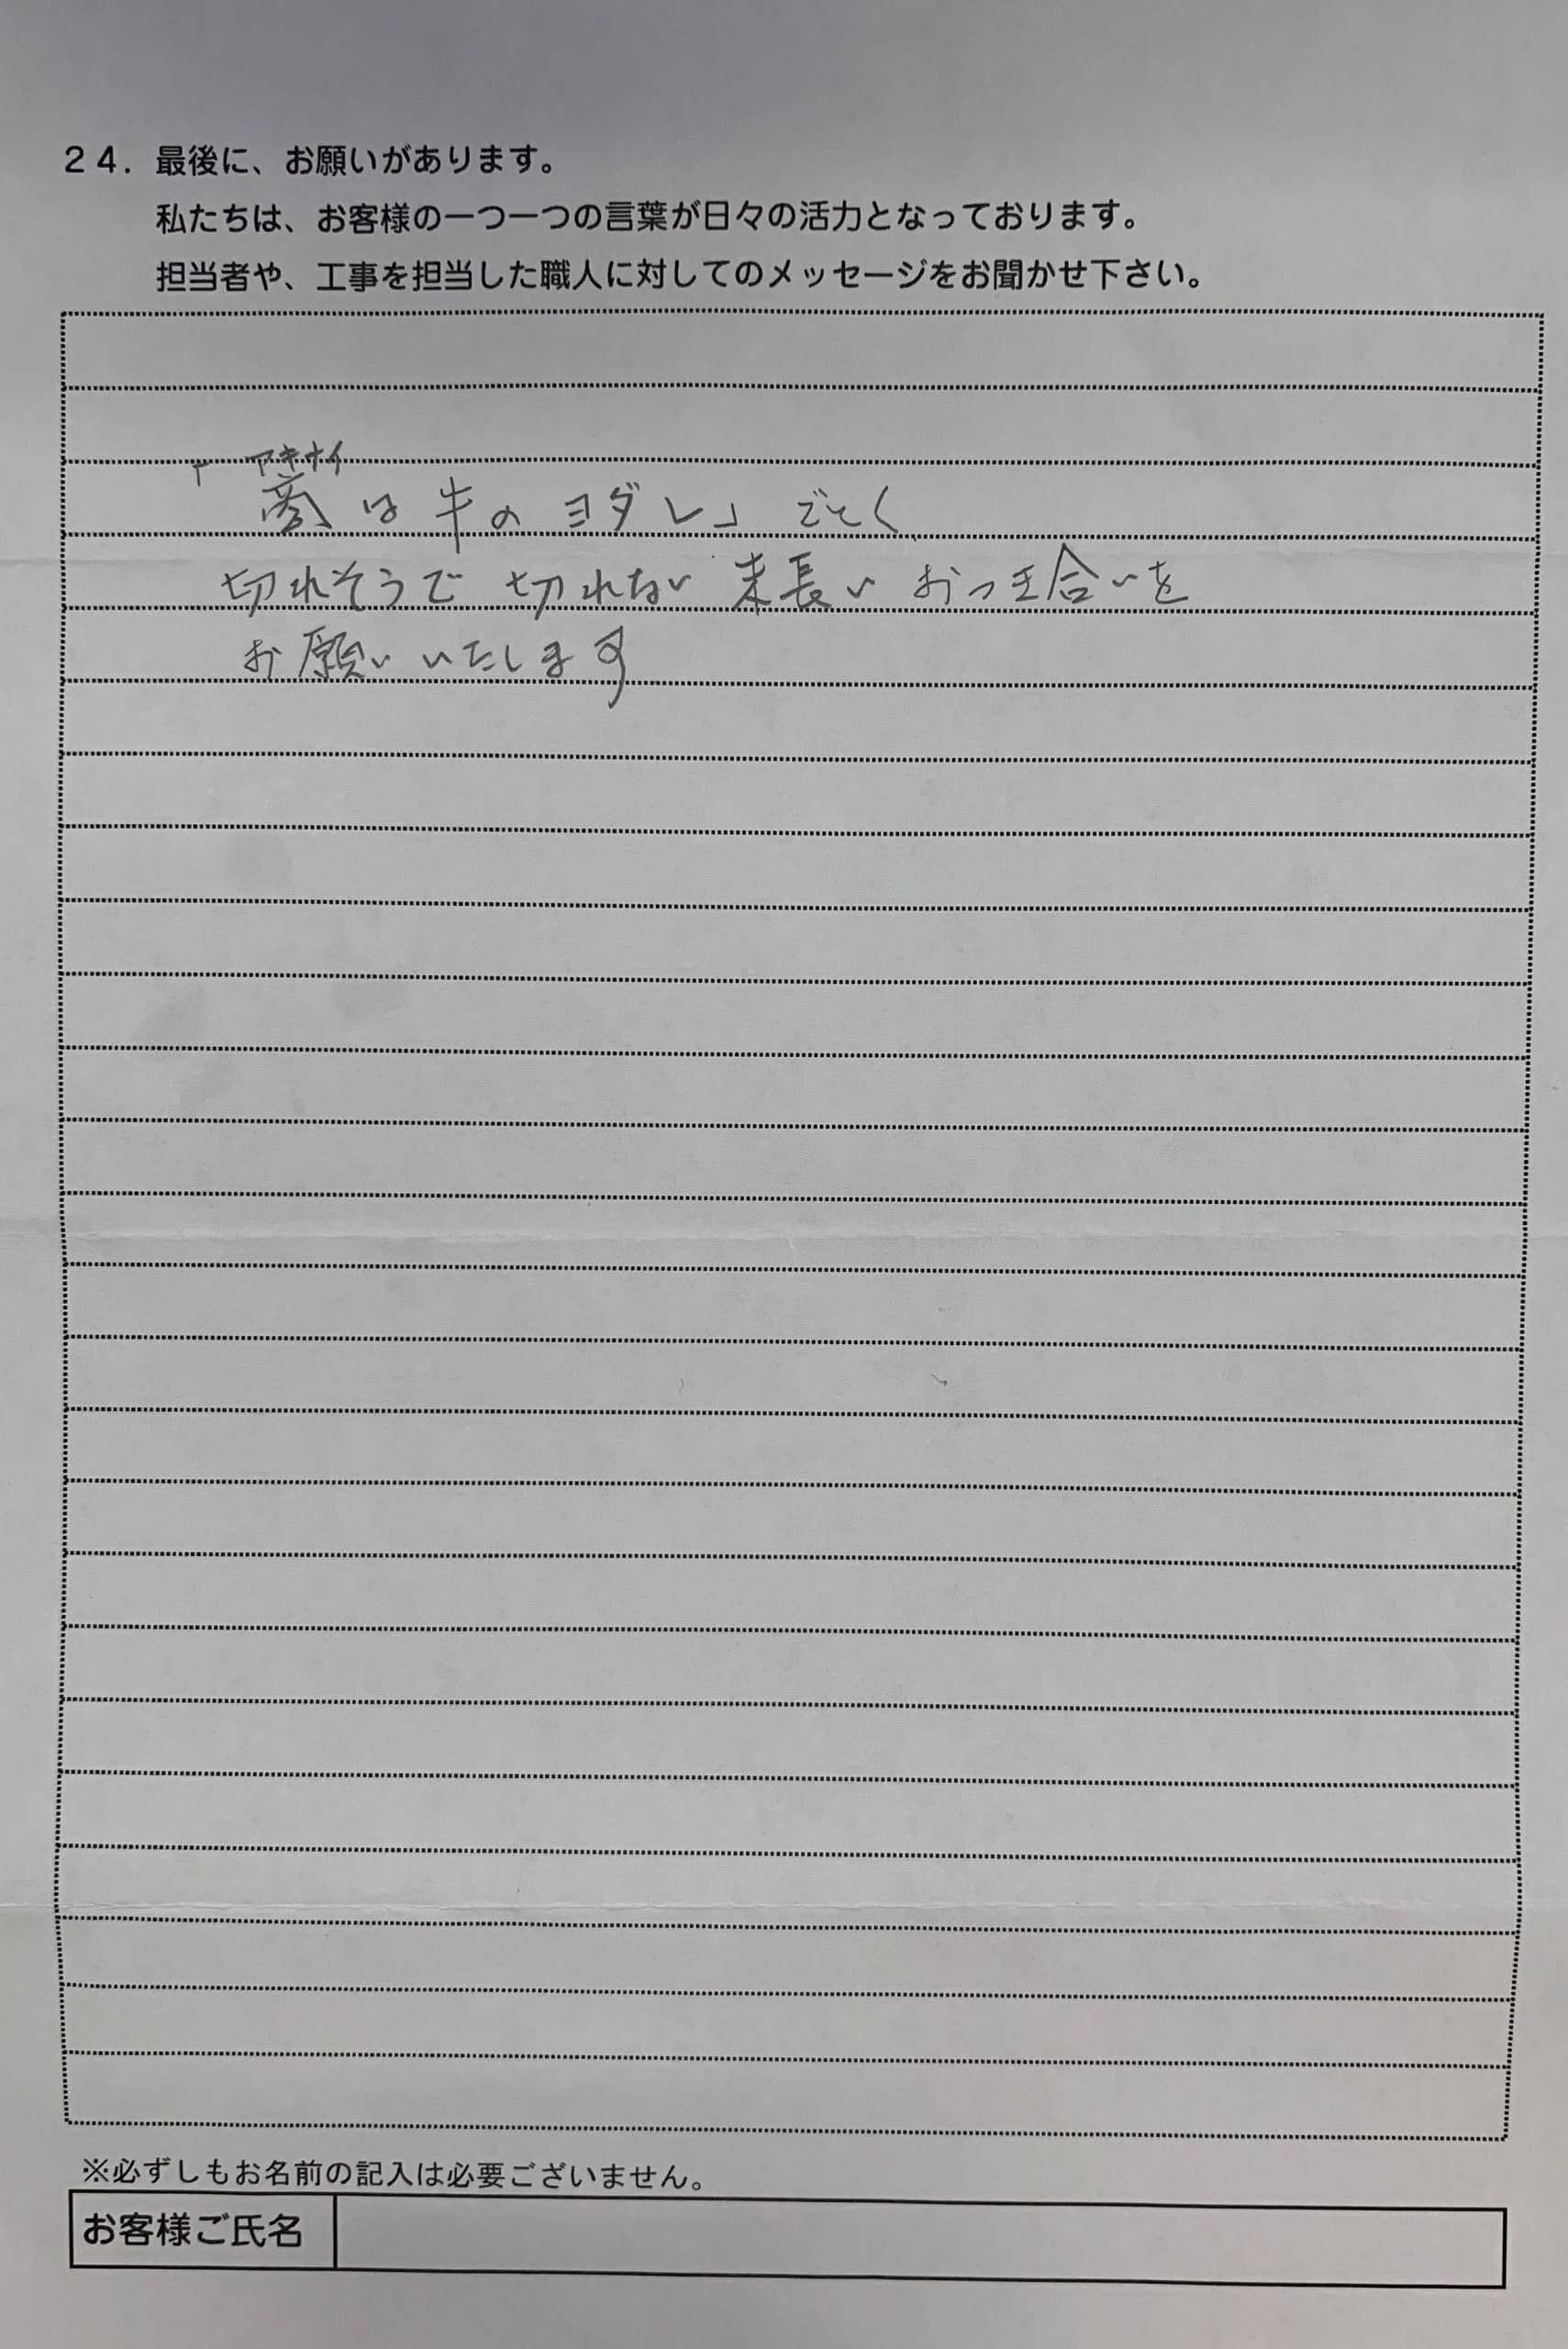 24. 最後に、お願いがあります。
私たちは、お客様の一つ一つの言葉が日々の活力となっております。
担当者や、工事を担当した職人に対してのメッセージをお聞かせ下さい。
アキナイ
「商は牛のヨダレ」ごとく
切れそうで切れない末長いおつき合いを
お願いいたします
※必ずしもお名前の記入は必要ございません。
お客様ご氏名